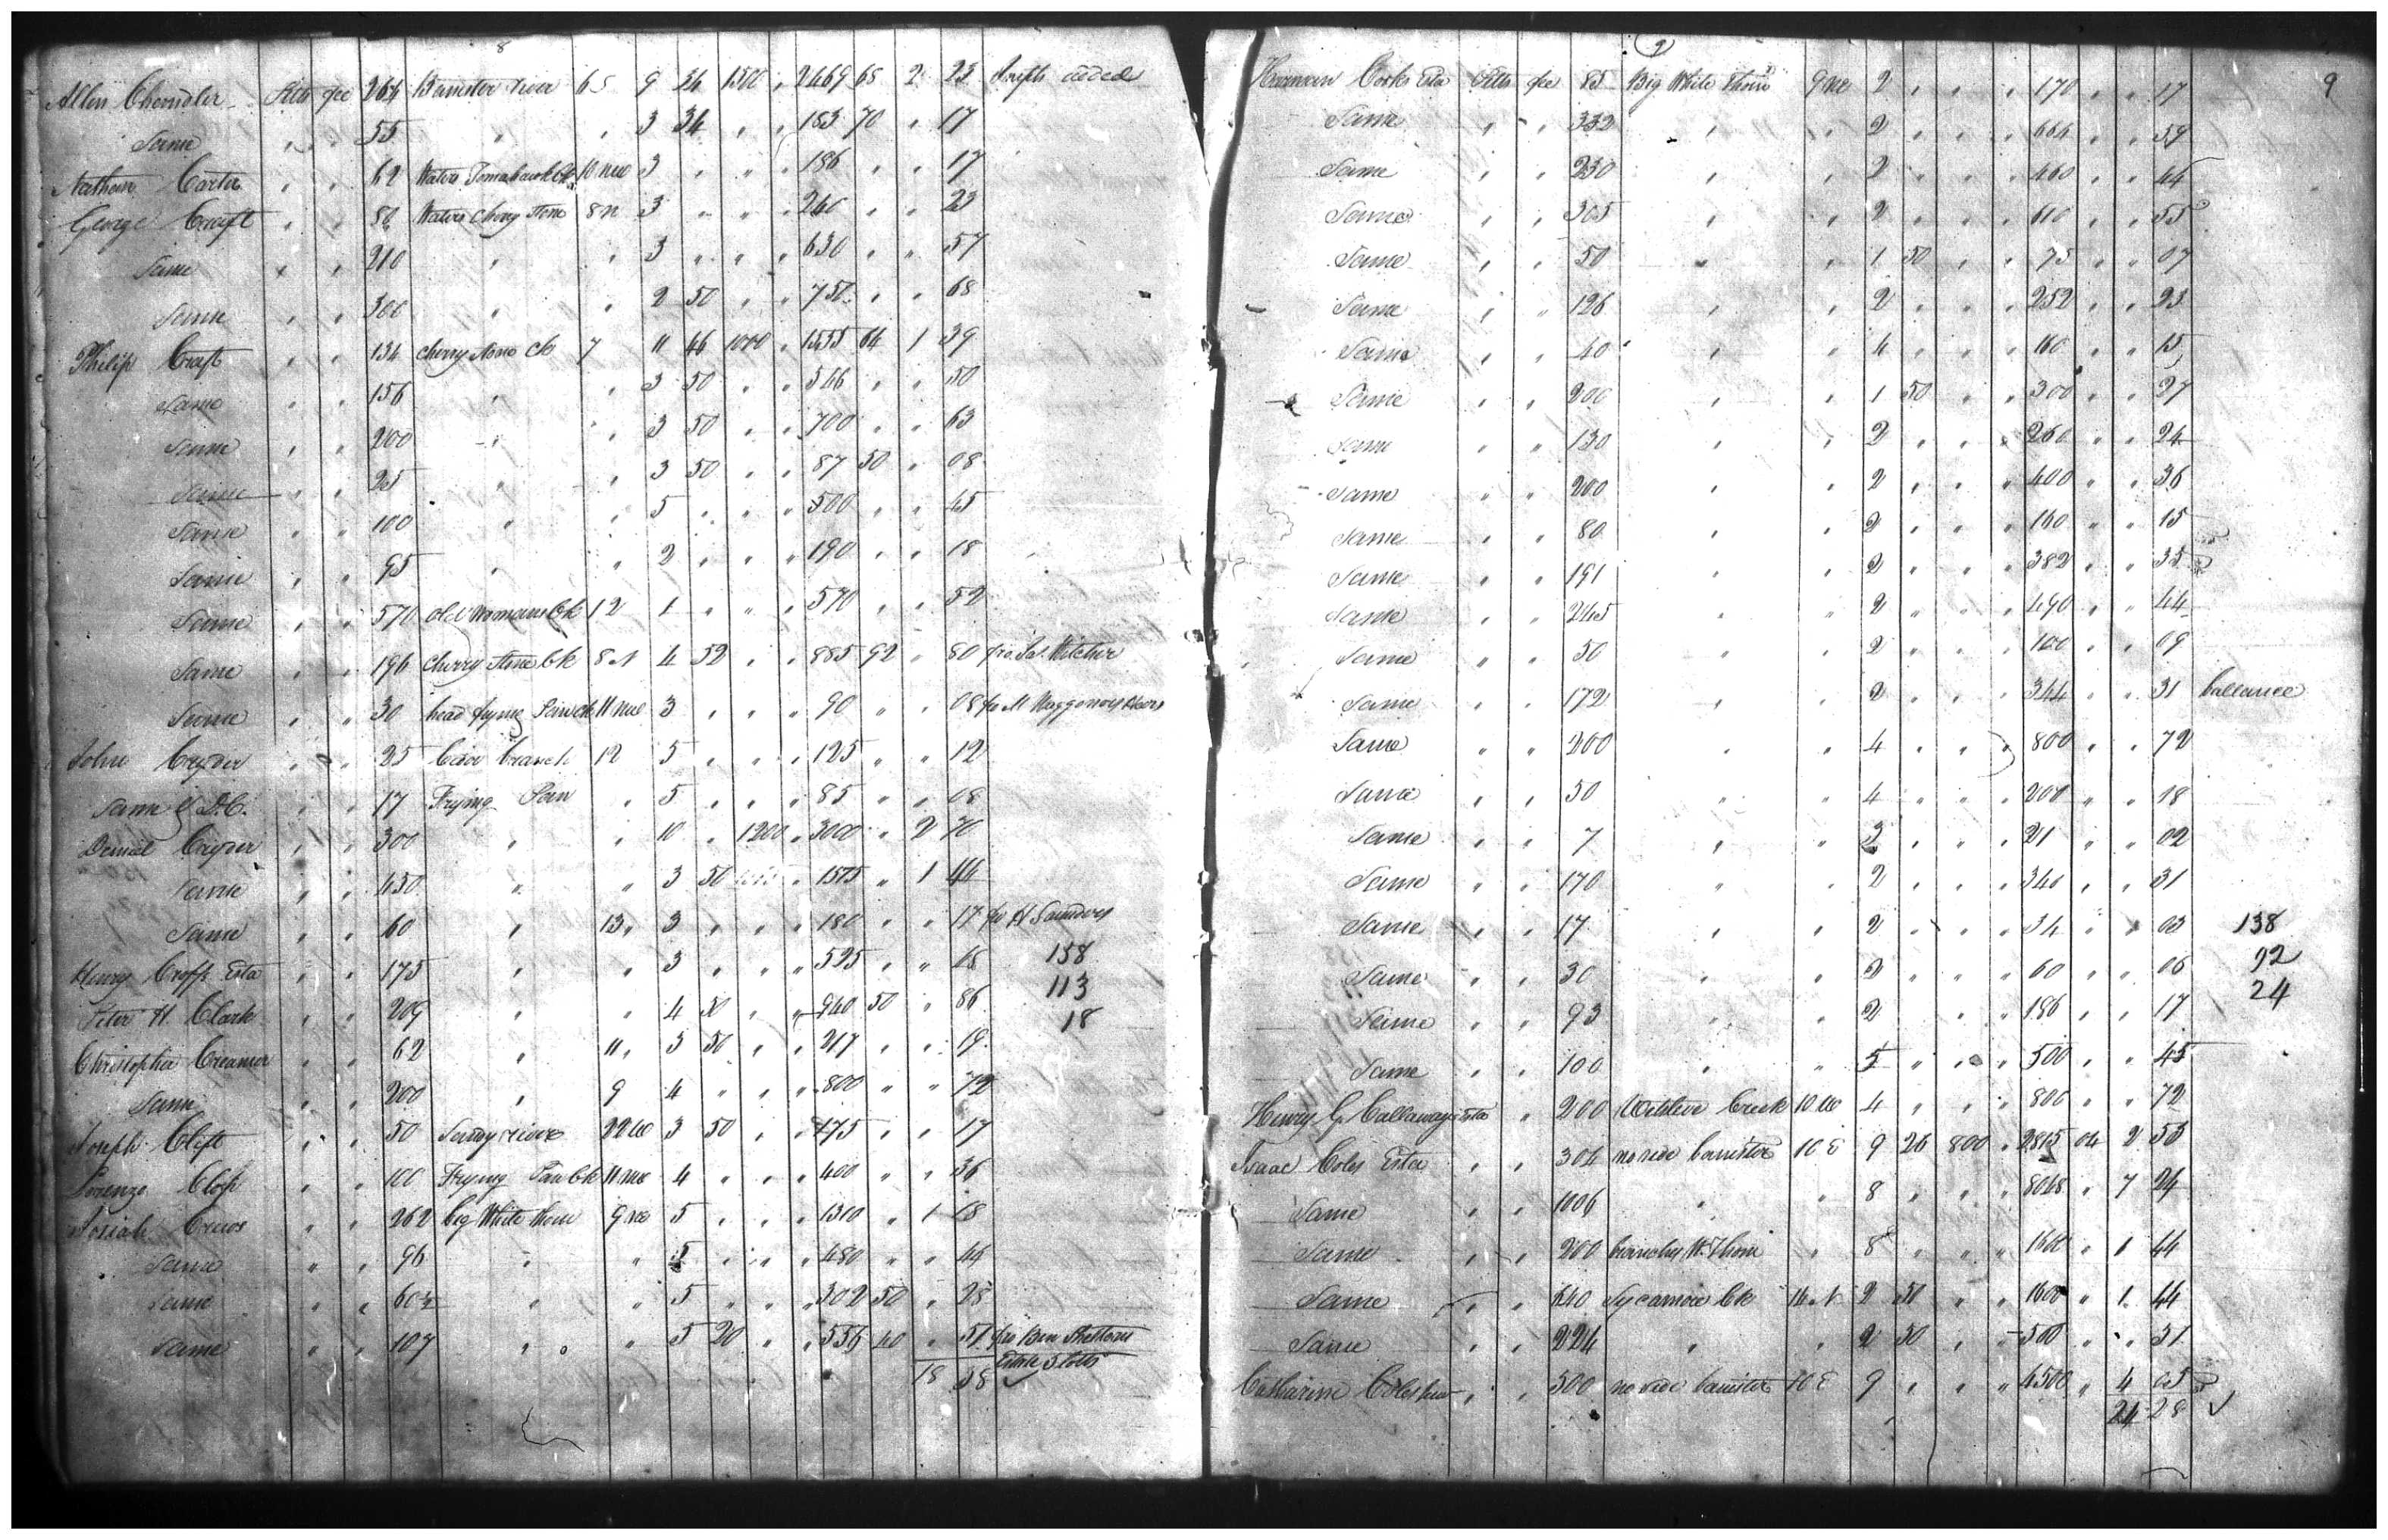 8
Allen Chandler Pitts fee 264 Banister river 6 S 9 34 1500 " 2469 68 2 23 Joseph added
Same " " 55 " " 3 34 " " 183 70 " 17
Nathan Carter " " 62 Waters Tomahawk Ck 10 nw 3 " " " 186 " " 17
George Craft " " 80 Waters Cherry Stone 8 n 3 " " " 240 " " 23
Same " " 210 " " 3 " " " 630 " " 57
Same " " 300 " " 2 50 " " 750 " " 68
Philip Craft " " 134 Cherry Stone Ck 7 11 46 1000 " 1535 64 1 39
Same " " 156 " " 3 50 " " 546 " " 50
Same " " 200 " " 3 50 " " 700 " " 63
Same " " 25 " " 3 50 " " 87 50 " 08
Same " " 100 " " 5 " " " 500 " " 45
Same " " 95 " " 2 " " " 190 " " 18
Same " " 570 Old Womans Ck 12 1 " " " 570 " " 52
Same " " 196 Cherry Stone Ck 8 N 4 52 " " 885 92 " 80 fro Jas. Witcher
Same " " 30 head frying Pan ck 11 nw 3 " " " 90 " " 08 fro M Waggoners Heirs
John Cryder " " 25 branch 12 5 " " " 125 " " 12
Same & D. C. " " 17 Frying Pan " 5 " " " 85 " " 08
Daniel Cryder " " 300 " " 10 " 1200 " 3000 " 2 70
Same " " 450 " " 3 50 " 1575 " 1 44
Same " " 60 " 13 " 3 " " " 180 " " 17 fro H Saunders
Henry Croff Esta " " 175 " " 3 " " " 525 " " 48 158
Peter H. Clark " " 209 " " 4 50 " " 940 50 " 86 113
18
Christopher Creamer " " 62 " 11 " 3 50 " " 217 " " 19
Same " " 200 " 9 4 " " " 800 " " 72
Joseph Clift " " 50 Sandy river 22 W 3 50 " " 175 " " 17
Lorenzo " " 100 Frying Pan Ck 11 nw 4 " " " 400 " " 36
Josiah " " 262 big White thorn 9 ne 5 " " " 1310 " 1 18
Same " " 96 " " 5 " " " 480 " " 44
Same " " 60½ " " 5 " " " 302 50 " 28
Same " " 107 " " 5 20 " " 556 40 " 51 fro Ben Sheltons
Estate 3 lotts
18 58 ✓
9
9
Harman Cooks Esta Pitts fee 85 Big White Thorn 9 ne 2 " " " 170 " " 17
Same " " 332 " " 2 " " " 664 " " 59
Same " " 230 " " 2 " " " 460 " " 44
Same " " 305 " " 2 " " " 610 " " 55
Same " " 50 " " 1 50 " " 75 " " 07
Same " " 126 " " 2 " " " 252 " " 23
Same " " 40 " " 4 " " " 160 " " 15
Same " " 200 " " 1 50 " " 300 " " 27
Same " " 130 " " 2 " " " 260 " " 24
Same " " 200 " " 2 " " " 400 " " 36
Same " " 80 " " 2 " " " 160 " " 15
Same " " 191 " " 2 " " " 382 " " 35
Same " " 245 " " 2 " " " 490 " " 44
Same " " 50 " " 2 " " " 100 " " 09
Same " " 172 " " 2 " " " 344 " " 31 ballance
Same " " 200 " " 4 " " " 800 " " 72
Same " " 50 " " 4 " " " 200 " " 18
Same " " 7 " " 3 " " " 21 " " 02
Same " " 170 " " 2 " " " 340 " " 31
Same " " 17 " " 2 " " " 34 " " 03 138
Same " " 30 " " 2 " " " 60 " " 06 92
Same " " 93 " " 2 " " 186 " " 17 24
Same " " 100 " " 5 " " " 500 " " 45
Henry G Callaways Esta " 200 Creek 10 W 4 " " " 800 " " 72
Isaac Coles Esta " " 304 no side banister 10 E 9 26 800 " 2815 04 2 53
Same " " 1006 " " 8 " " " 8048 " 7 24
Same " " 200 branches W. Thorn " 8 " " " 1600 " 1 44
Same " " 640 Sycamore Ck 14 N 2 50 " " 1600 " 1 44
Same " " 224 " " 2 50 " " 560 " " 51
Catharine Coles " " 500 no side banister 10 E 9 " " " 4500 " 4 05
24 28 ✓